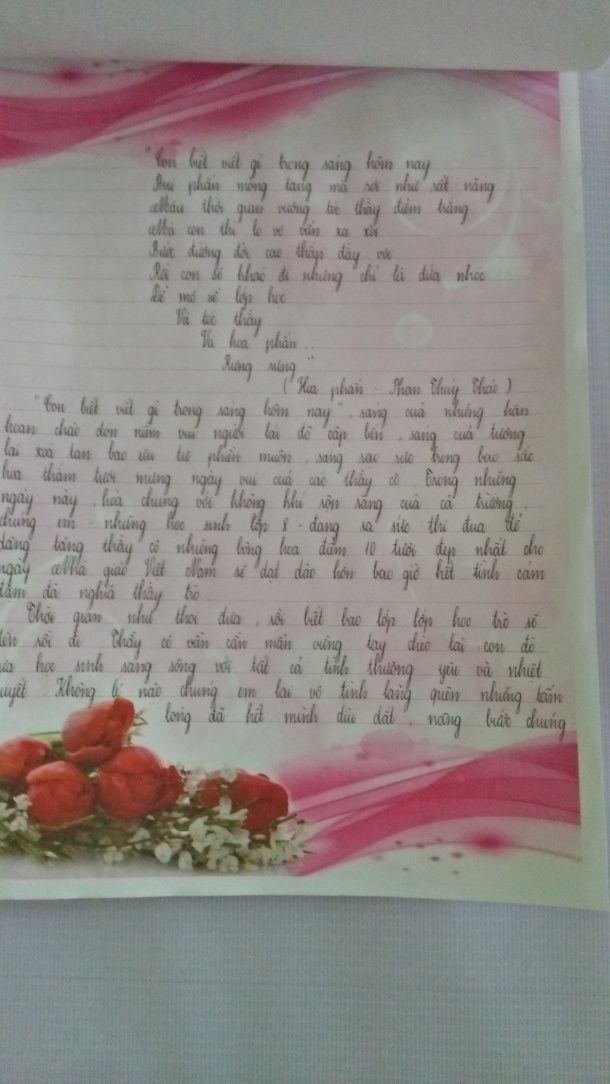 "Con biết viết gì trong sáng hôm nay
Bụi phấn mỏng tang mà rơi như sất nặng
Màu thời gian vương tóc thầy điểm trắng
Mà con thì lo vẽ vẩn xa xôi
Bước đường đời cao thấp đầy vơi
Rồi con sẽ khác đi nhưng chỉ là đứa nhóc
Để mơ về lớp học
Và tóc thầy
Và hoa phấn ...
Rưng rưng "
( Hoa phấn - Phan Thúy Thảo )
"Con biết viết gì trong sáng hôm nay", sáng của những hân
hoan chào đón niềm vui người lái đò cập bến, sáng của tương
lai xóa tan bao ưu tư phiền muộn, sáng sao sức trong bao sắc
hoa thắm tươi mừng ngày vui của các thầy cô. Trong những
ngày này, hòa chung với không khí sôn sáng của cả trường,
chúng em - những học sinh lớp 8 - đang ra sức thi đua để
dâng tặng thầy cô những bông hoa điểm 10 tươi đẹp nhất cho
ngày Nhà giáo Việt Nam sẽ dạt dào hơn bao giờ hết tình cảm
đậm đà nghĩa thầy trò.
Thời gian như thoi đưa, rồi biết bao lớp lớp học trò sẽ
đến rồi đi. Thầy cô vẫn cần mẫn vững tay chèo lái con đò
đưa học sinh sang sông với tất cả tình thương yêu và nhiệt
huyết. Không lí nào chúng em lại vô tình lãng quên những tấm
lòng đã hết mình dìu dắt, nâng bước chúng